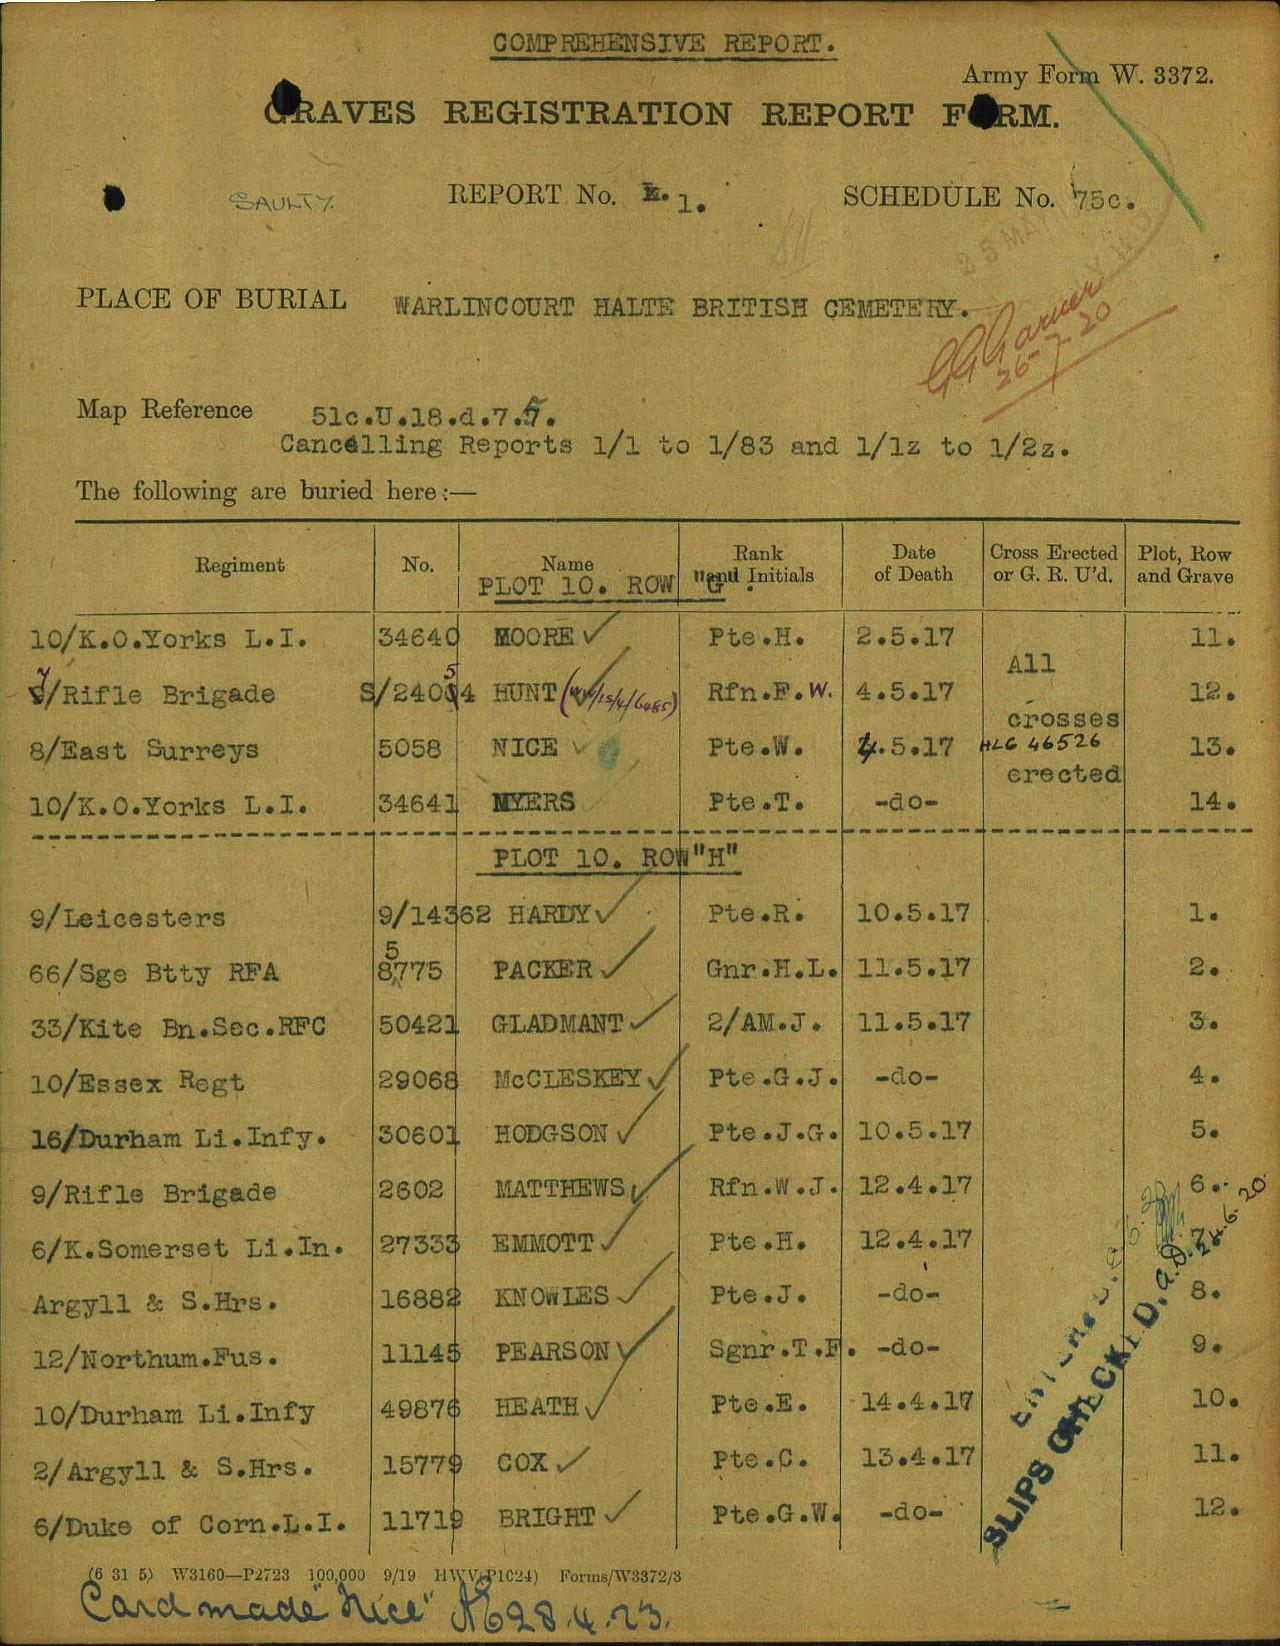 COMPREHENSIVE REPORT.
Army Form W. 3372.
GRAVES REGISTRATION REPORT FORM.
SAULTY. REPORT No. 1. SCHEDULE No. 75c.
25 MAY
PLACE OF BURIAL WARLINCOURT HALTE BRITISH CEMETERY.
26-7-20
Map Reference 51c.U.18.d.7.5.
Cancelling Reports 1/1 to 1/83 and 1/1z to 1/2z.
The following are buried here:—
Regiment No. Name Rank and Initials Date of Death Cross Erected or G. R. U'd. Plot, Row and Grave
PLOT 10. ROW "G".
10/K.O.Yorks L.I. 34640 MOORE ✓ Pte.H. 2.5.17 All 11.
7/Rifle Brigade S/24054 HUNT ✓ Rfn.F.W. 4.5.17 crosses 12.
8/East Surreys 5058 NICE ✓ Pte.W. 4.5.17 HLG 46526 13.
erected
10/K.O.Yorks L.I. 34641 MYERS Pte.T. -do- 14.
PLOT 10. ROW "H"
9/Leicesters 9/14362 HARDY ✓ Pte.R. 10.5.17 1.
66/Sge Btty RFA 85775 PACKER ✓ Gnr.H.L. 11.5.17 2.
33/Kite Bn.Sec.RFC 50421 GLADMANT ✓ 2/AM.J. 11.5.17 3.
10/Essex Regt 29068 McCLESKEY ✓ Pte.G.J. -do- 4.
16/Durham Li.Infy. 30601 HODGSON ✓ Pte.J.G. 10.5.17 5.
9/Rifle Brigade 2602 MATTHEWS ✓ Rfn.W.J. 12.4.17 6.
6/K.Somerset Li.In. 27333 EMMOTT ✓ Pte.H. 12.4.17 7.
Argyll & S.Hrs. 16882 KNOWLES ✓ Pte.J. -do- 8.
12/Northum.Fus. 11145 PEARSON ✓ Sgnr.T.F. -do- 9.
10/Durham Li.Infy 49876 HEATH ✓ Pte.E. 14.4.17 10.
2/Argyll & S.Hrs. 15779 COX ✓ Pte.C. 13.4.17 11.
6/Duke of Corn.L.I. 11719 BRIGHT ✓ Pte.G.W. -do- 12.
SLIPS CHECKED. A.D. 24.6.20.
(6 31 5) W3160—P2723 100,000 9/19 HWV(P1024) Forms/W3372/3
Card made "Nice" 28.4.23.